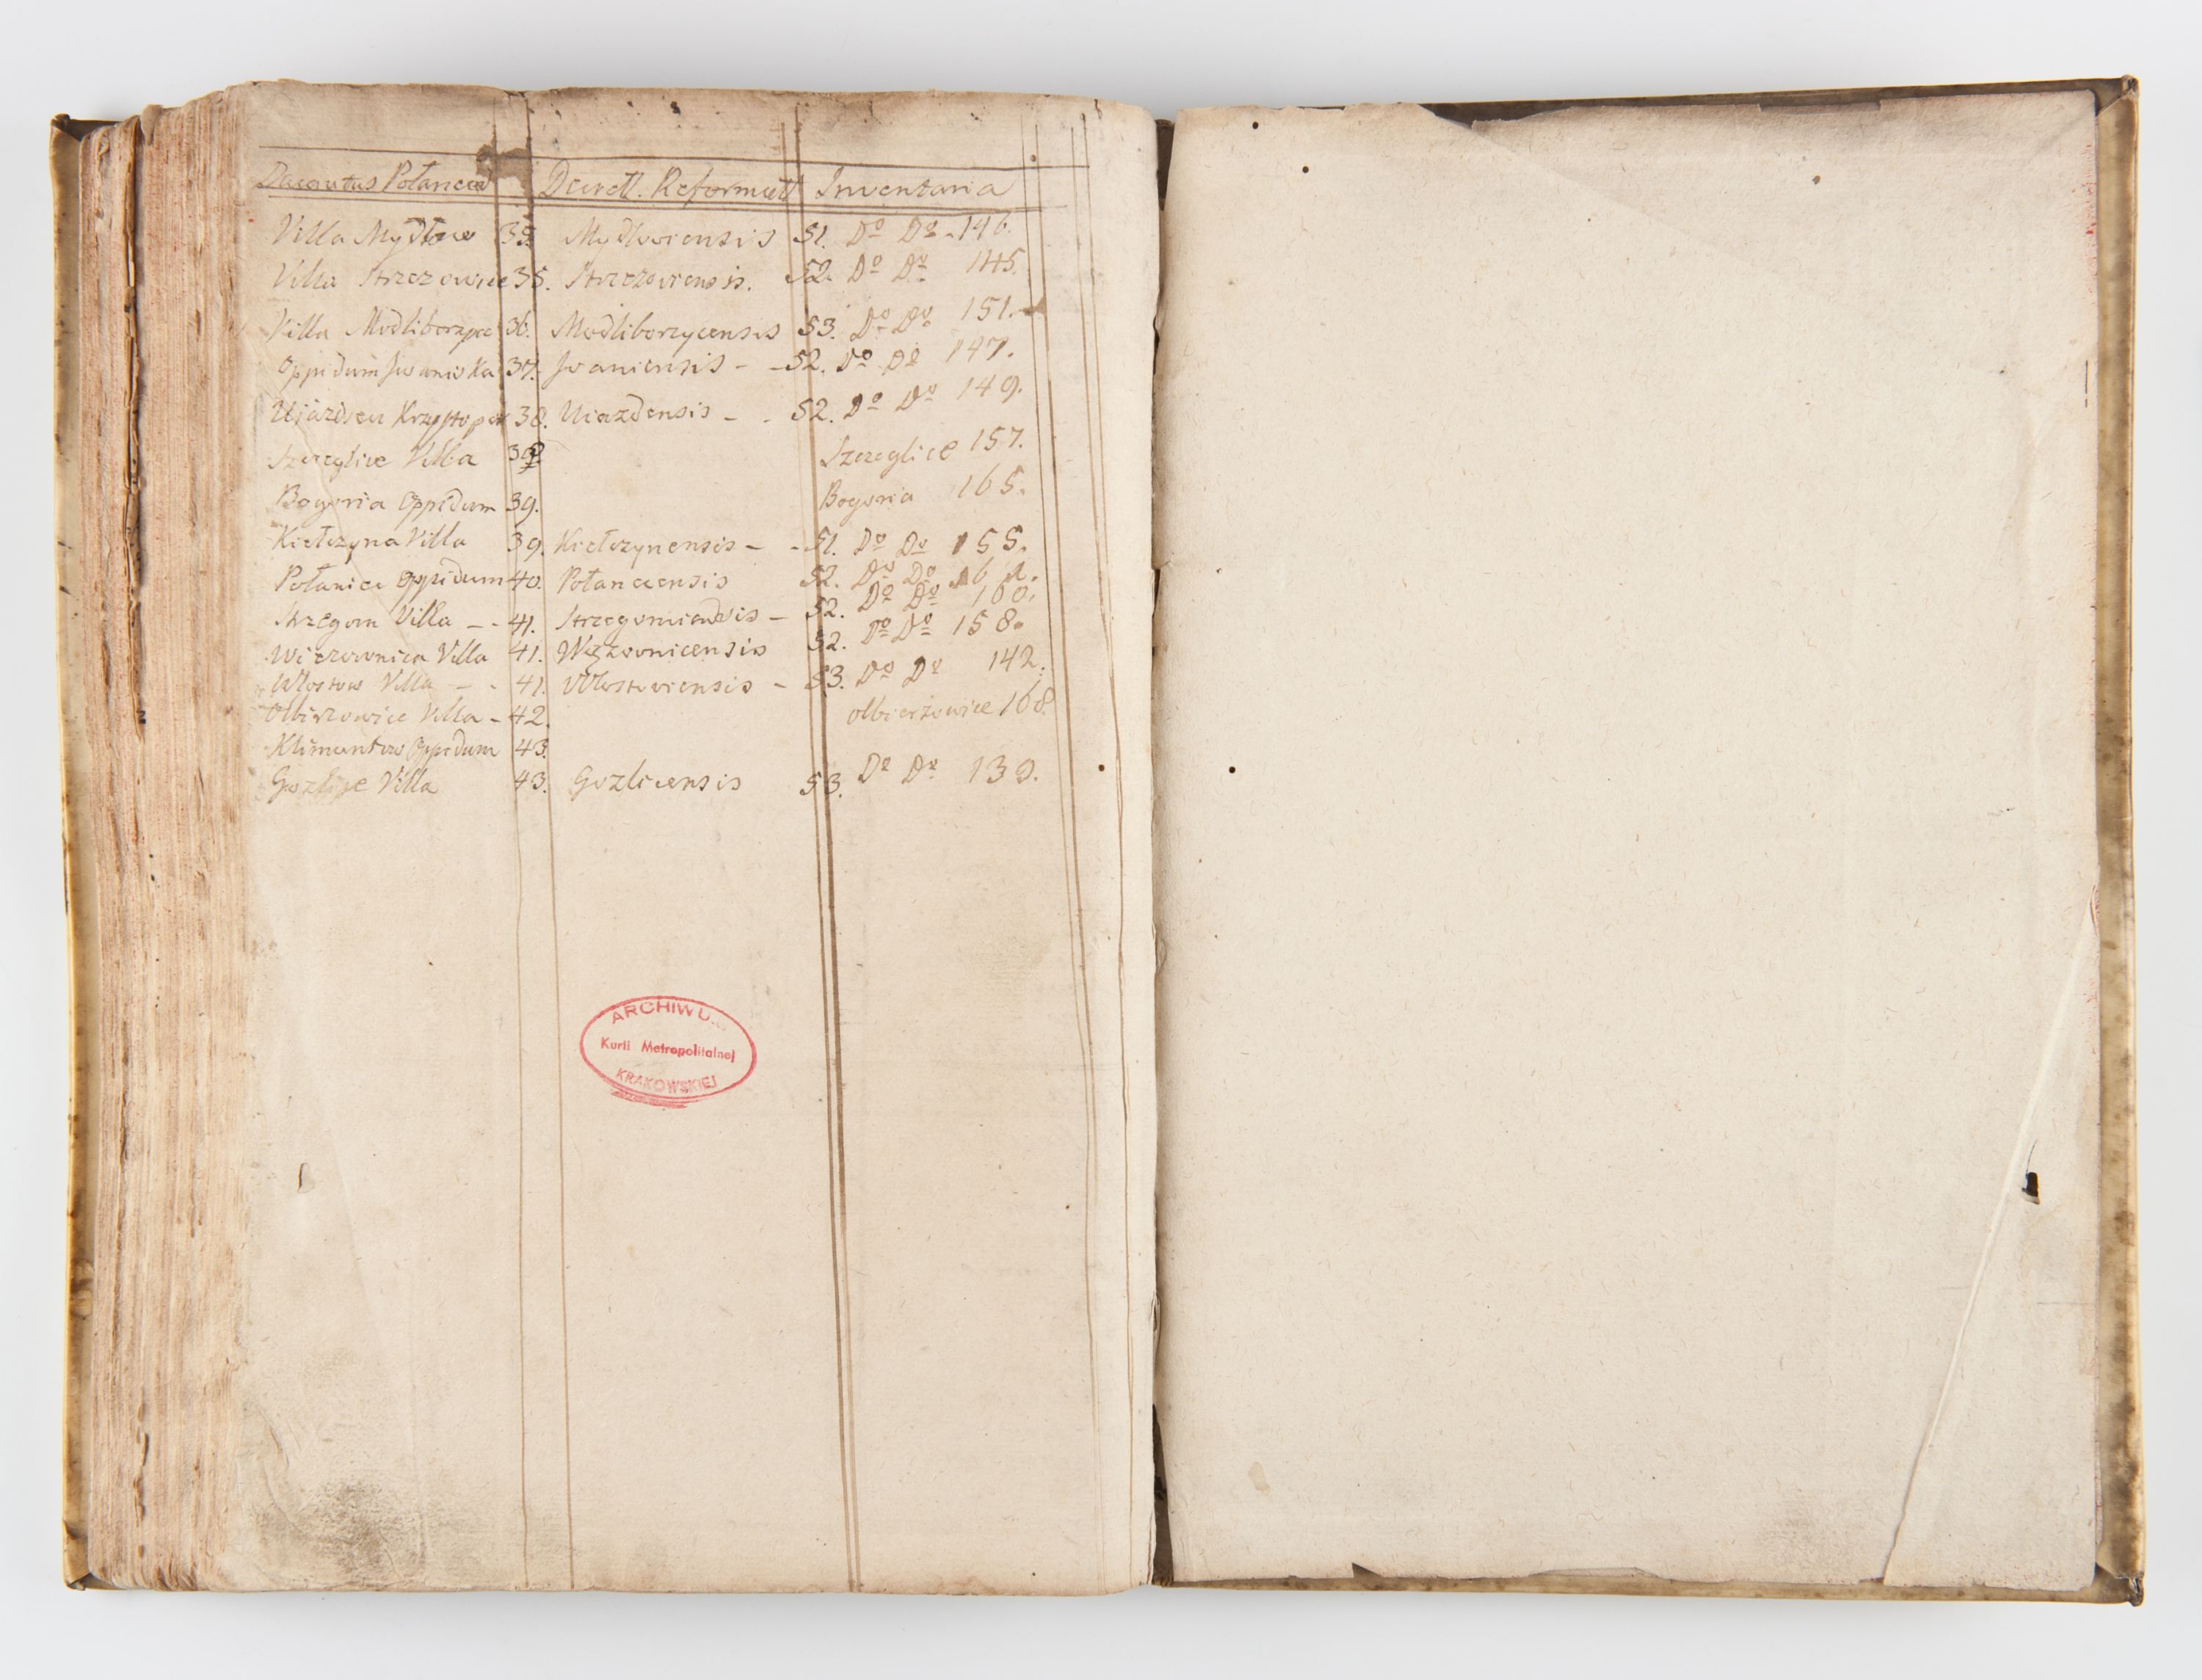 Decanatus Połanecen Decrett. Reformatt Inventaria
Villa Mydłow 35. Mydloviensis 51. Dº Dº - 146.
Villa Strzezowice 35. Strzezoviensis. 52. Dº Dº 145.
Villa Modliborzyce 36. Modliborzycensis 53. Dº Dº 151.
Oppidum Iwaniska 37. Jvaniensis - - 52. Dº Dº 147.
Ujazd seu Krzysztopor 38. Uiazdensis - - 52. Dº Dº 149.
Szczeglice Villa 38 Szczeglice 157.
Bogoria Oppidum 39. Bogoria 165.
Kiełczyna Villa 39. Kiełczynensis - - 51. Dº Dº 155.
Połaniec Oppidum 40. Połanecensis 52. Dº Dº
Strzegom Villa - - 41. Strzegomiensis - 52. Dº Dº 160.
Wiązownica Villa 41. Wiązovnicensis 52. Dº Dº 158.
Włostow Villa - - 41. Wlostoviensis - 53. Dº Dº 142.
Olbierzowice Villa - 42. Olbierzowice 168.
Klimuntow Oppidum 43.
Gozlice Villa 43. Gozlicensis 53. Dº Dº 139.
ARCHIWU
Kurii Metropolitalnej
KRAKOWSKIEJ